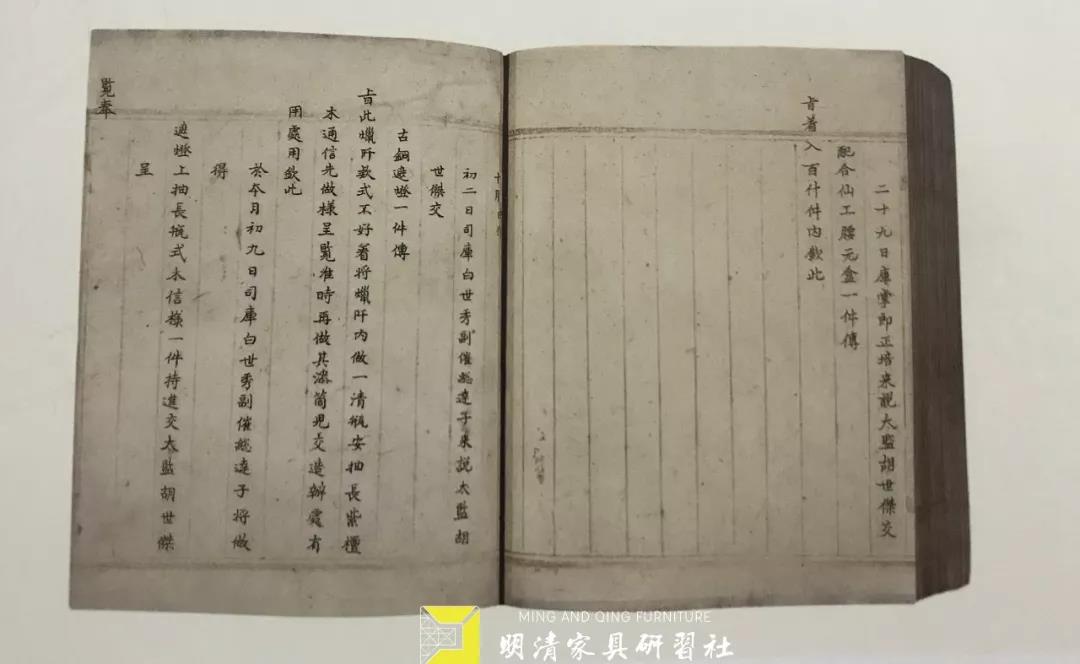 二十九日庫掌即正培來說太監胡世傑交
配合仙工腰元盒一件傳
旨着入百什件内欽此
初二日司庫白世秀副催總達子來説太監胡
世傑交
古銅遮燈一件傳
旨此蠟阡欵式不好着將蠟阡内做一清瓶安抽長紫檀
木通信先做樣呈覧准時再做其滌筒兒交造辦處有
用處用欽此
於本月初九日司庫白世秀副催總達子將做
得
遮燈上抽長瓶式木信樣一件持進交太監胡世傑
呈
覧奉
MING AND QING FURNITURE
明清家具研習社